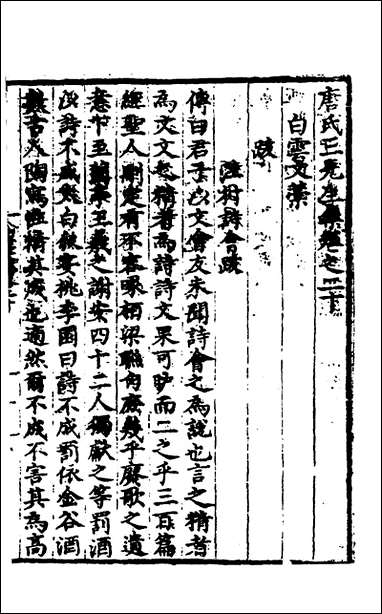 唐氏三先生集卷之二十
白雲文藁
跋
詩會跋
傳曰君子以文會友未聞詩會之為說也言之精者
為文文之精者為詩詩文果可歧而二之乎三百篇
經聖人刪定有不容喙柏梁聯句庶幾乎賡歌之遺
意下至蘭亭王羲之謝安四十二人獨獻之等罰酒
以詩不成然白桃李園曰詩不成罰依金谷酒
古人陶寫性情其成也適然爾不成不害其為高